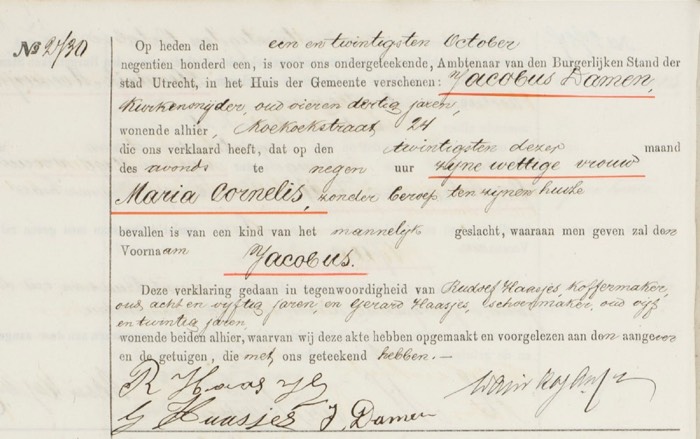 No 2730
Op heden den een en twintigsten October
negentien honderd een, is voor ons ondergeteekende, Ambtenaar van den Burgerlijken Stand der
stad Utrecht, in het Huis der Gemeente verschenen: Jacobus Damen,
kurkensnijder, oud vier en dertig jaren,
wonende alhier, Koekoekstraat 24
die ons verklaard heeft, dat op den twintigsten dezer maand
des avonds te negen uur zijne wettige vrouw
Maria Cornelis, zonder beroep ten zijnen huize
bevallen is van een kind van het mannelijk geslacht, waaraan men geven zal den
Voornaam Jacobus.
Deze verklaring gedaan in tegenwoordigheid van Rudolf Haasjes, koffermaker,
oud acht en vijftig jaren, en Gerard Haasjes, schoenmaker, oud vijf
en twintig jaren,
wonende beiden alhier, waarvan wij deze akte hebben opgemaakt en voorgelezen aan den aangever
en de getuigen, die met ons geteekend hebben. —
R Haasjes
G Haasjes J. Damen